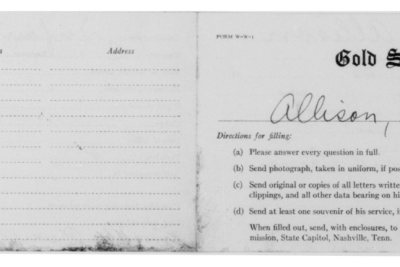 Address
FORM W-W-1
Gold S
Allison,
Directions for filing:
(a) Please answer every question in full.
(b) Send photograph, taken in uniform, if pos
(c) Send original or copies of all letters writte
clippings, and all other data bearing on hi
(d) Send at least one souvenir of his service, i
When filled out, send, with enclosures, to
mission, State Capitol, Nashville, Tenn.